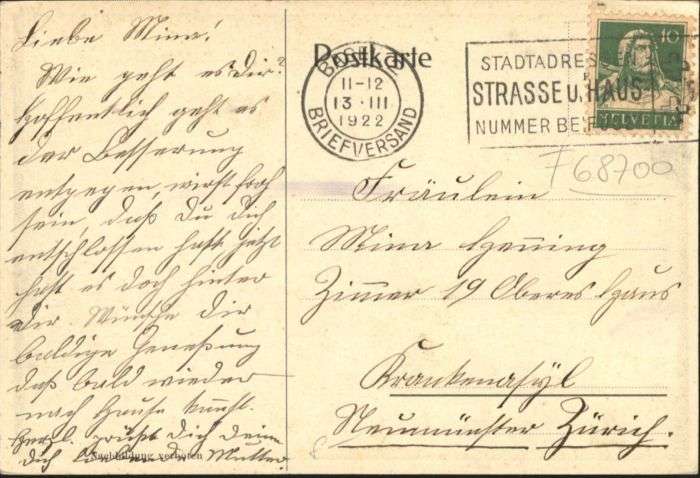 Liebe Mina!
Wie geht es dir?
Hoffentlich geht es
der Besserung
entgegen, wirst froh
sein, daß Du Dich
entschlossen hast, jetzt
hast es doch hinter
Dir. Wünsche dir
baldige Genesung
daß bald wieder
nach Hause kannst.
Herzl. grüßt Dich Deine
Dich liebende Mutter
Nachbildung verboten
Postkarte
BASEL
11-12
13 · III
1922
BRIEFVERSAND
STADTADRES
STRASSE U. HAUS
NUMMER BE
10
HELVETIA
F 68700
Fräulein
Mina Henning
Zimmer 19 Oberes Haus
Krankenasyl
Neumünster Zürich.